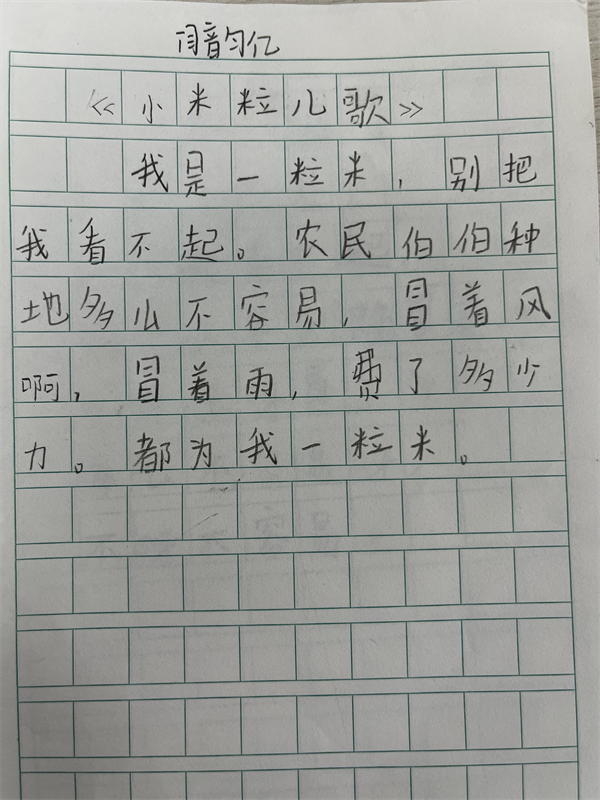 闫音匀亿
《小米粒儿歌》
我是一粒米,别把
我看不起。农民伯伯种
地多么不容易,冒着风
啊,冒着雨,费了多少
力。都为我一粒米。